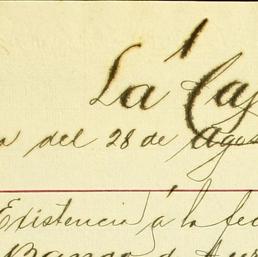 La Caj
del 28 de Agos
Existencia á la fec
Banco d